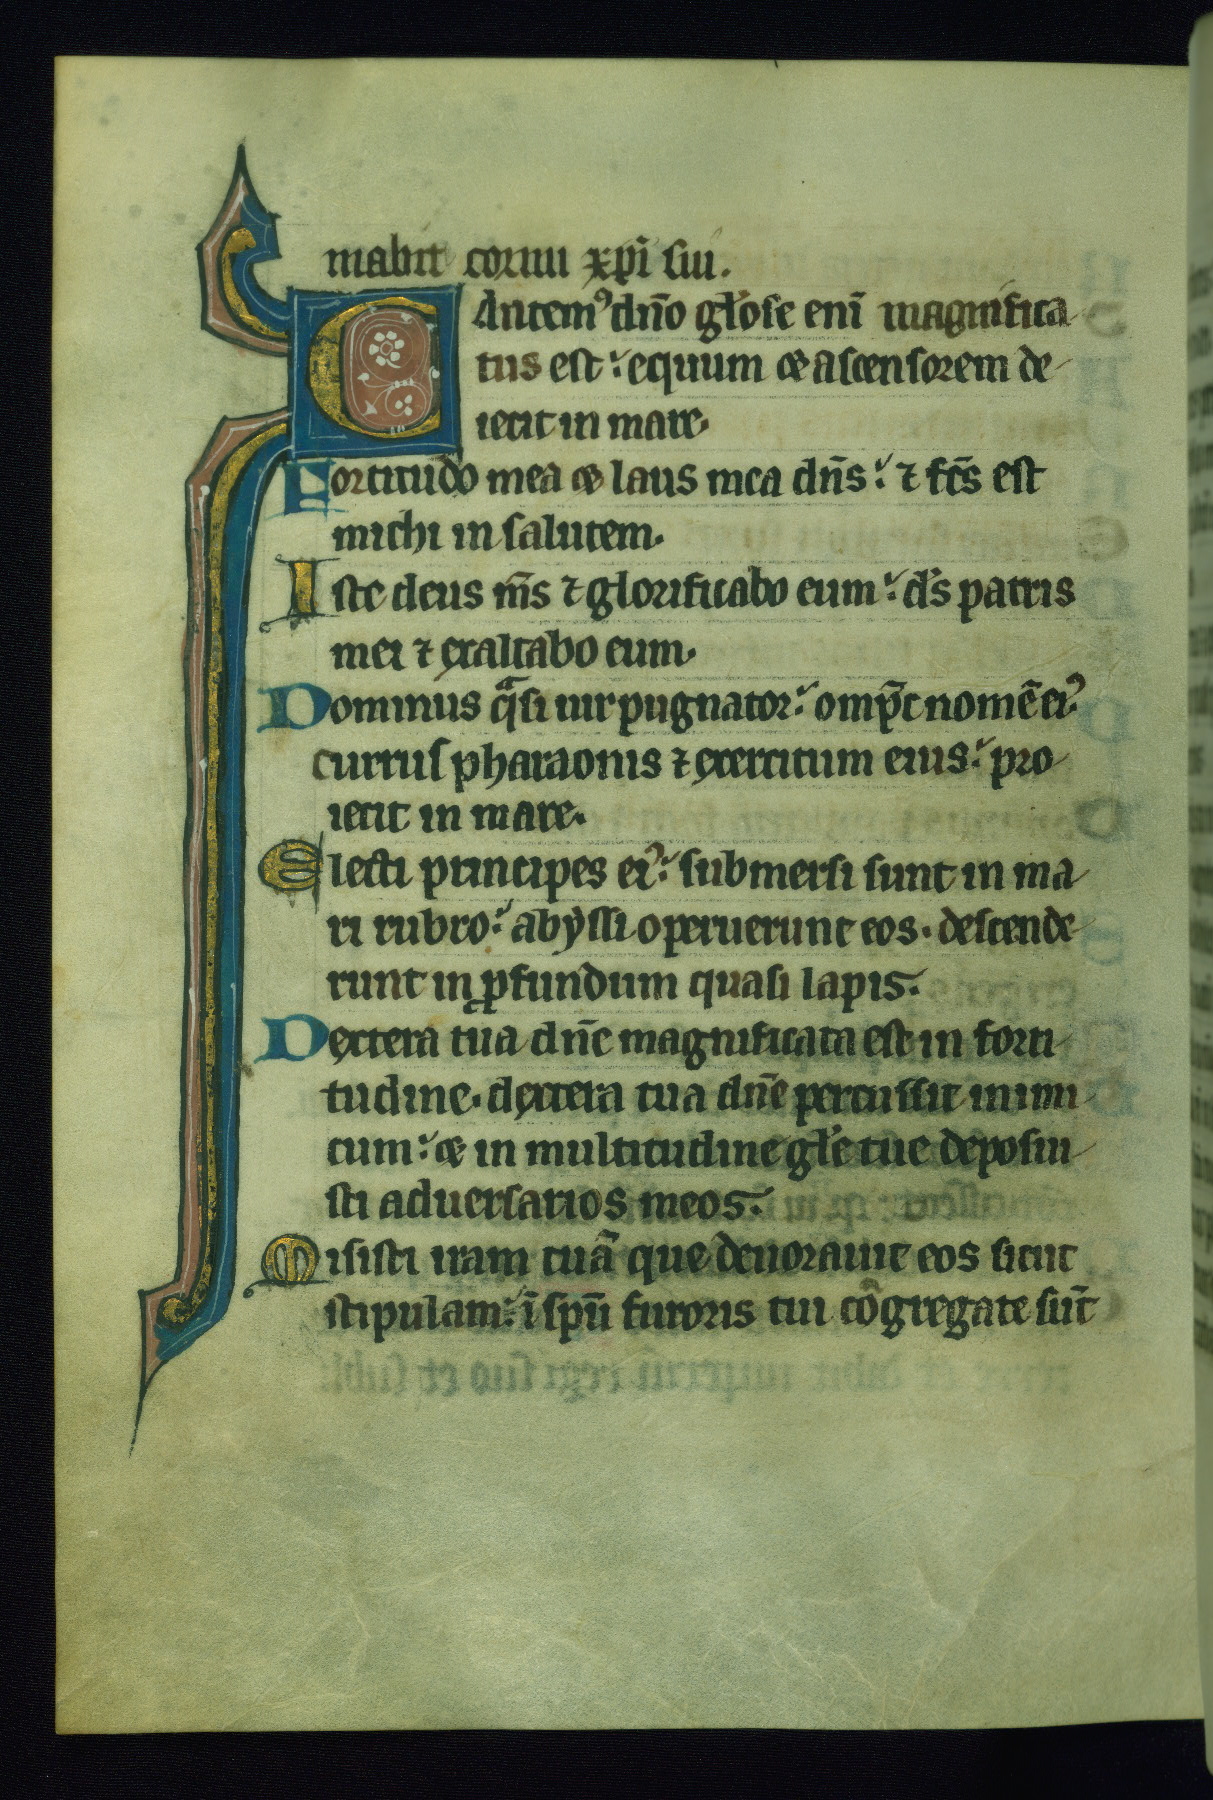 mabit cornu xp̄i sui.
CAntem⁹ dn̄o gl̄ose eni̅ magnifica
tus est: equum et ascensorem de
iecit in mare.
Fortitudo mea et laus mea dn̄s: ⁊ fc̄s est
michi in salutem.
Iste deus m̄s ⁊ glorificabo eum: ds̄ patris
mei ⁊ exaltabo eum.
Dominus qͣsi uir pugnator: omp̄c nomē ei⁹
currus pharaonis ⁊ exercitum eius: pro
iecit in mare.
Electi principes ei⁹: submersi sunt in ma
ri rubro: abyssi operuerunt eos. descende
runt in ꝓfundum quasi lapis.
Dextera tua dn̄e magnificata est in forti
tudine. dextera tua dn̄e percussit inimi
cum: et in multitudine gl̄e tue deposui
sti aduersarios meos.
Misisti iram tuā que deuorauit eos sicut
stipulam: ī spū furoris tui cōgregate sūt